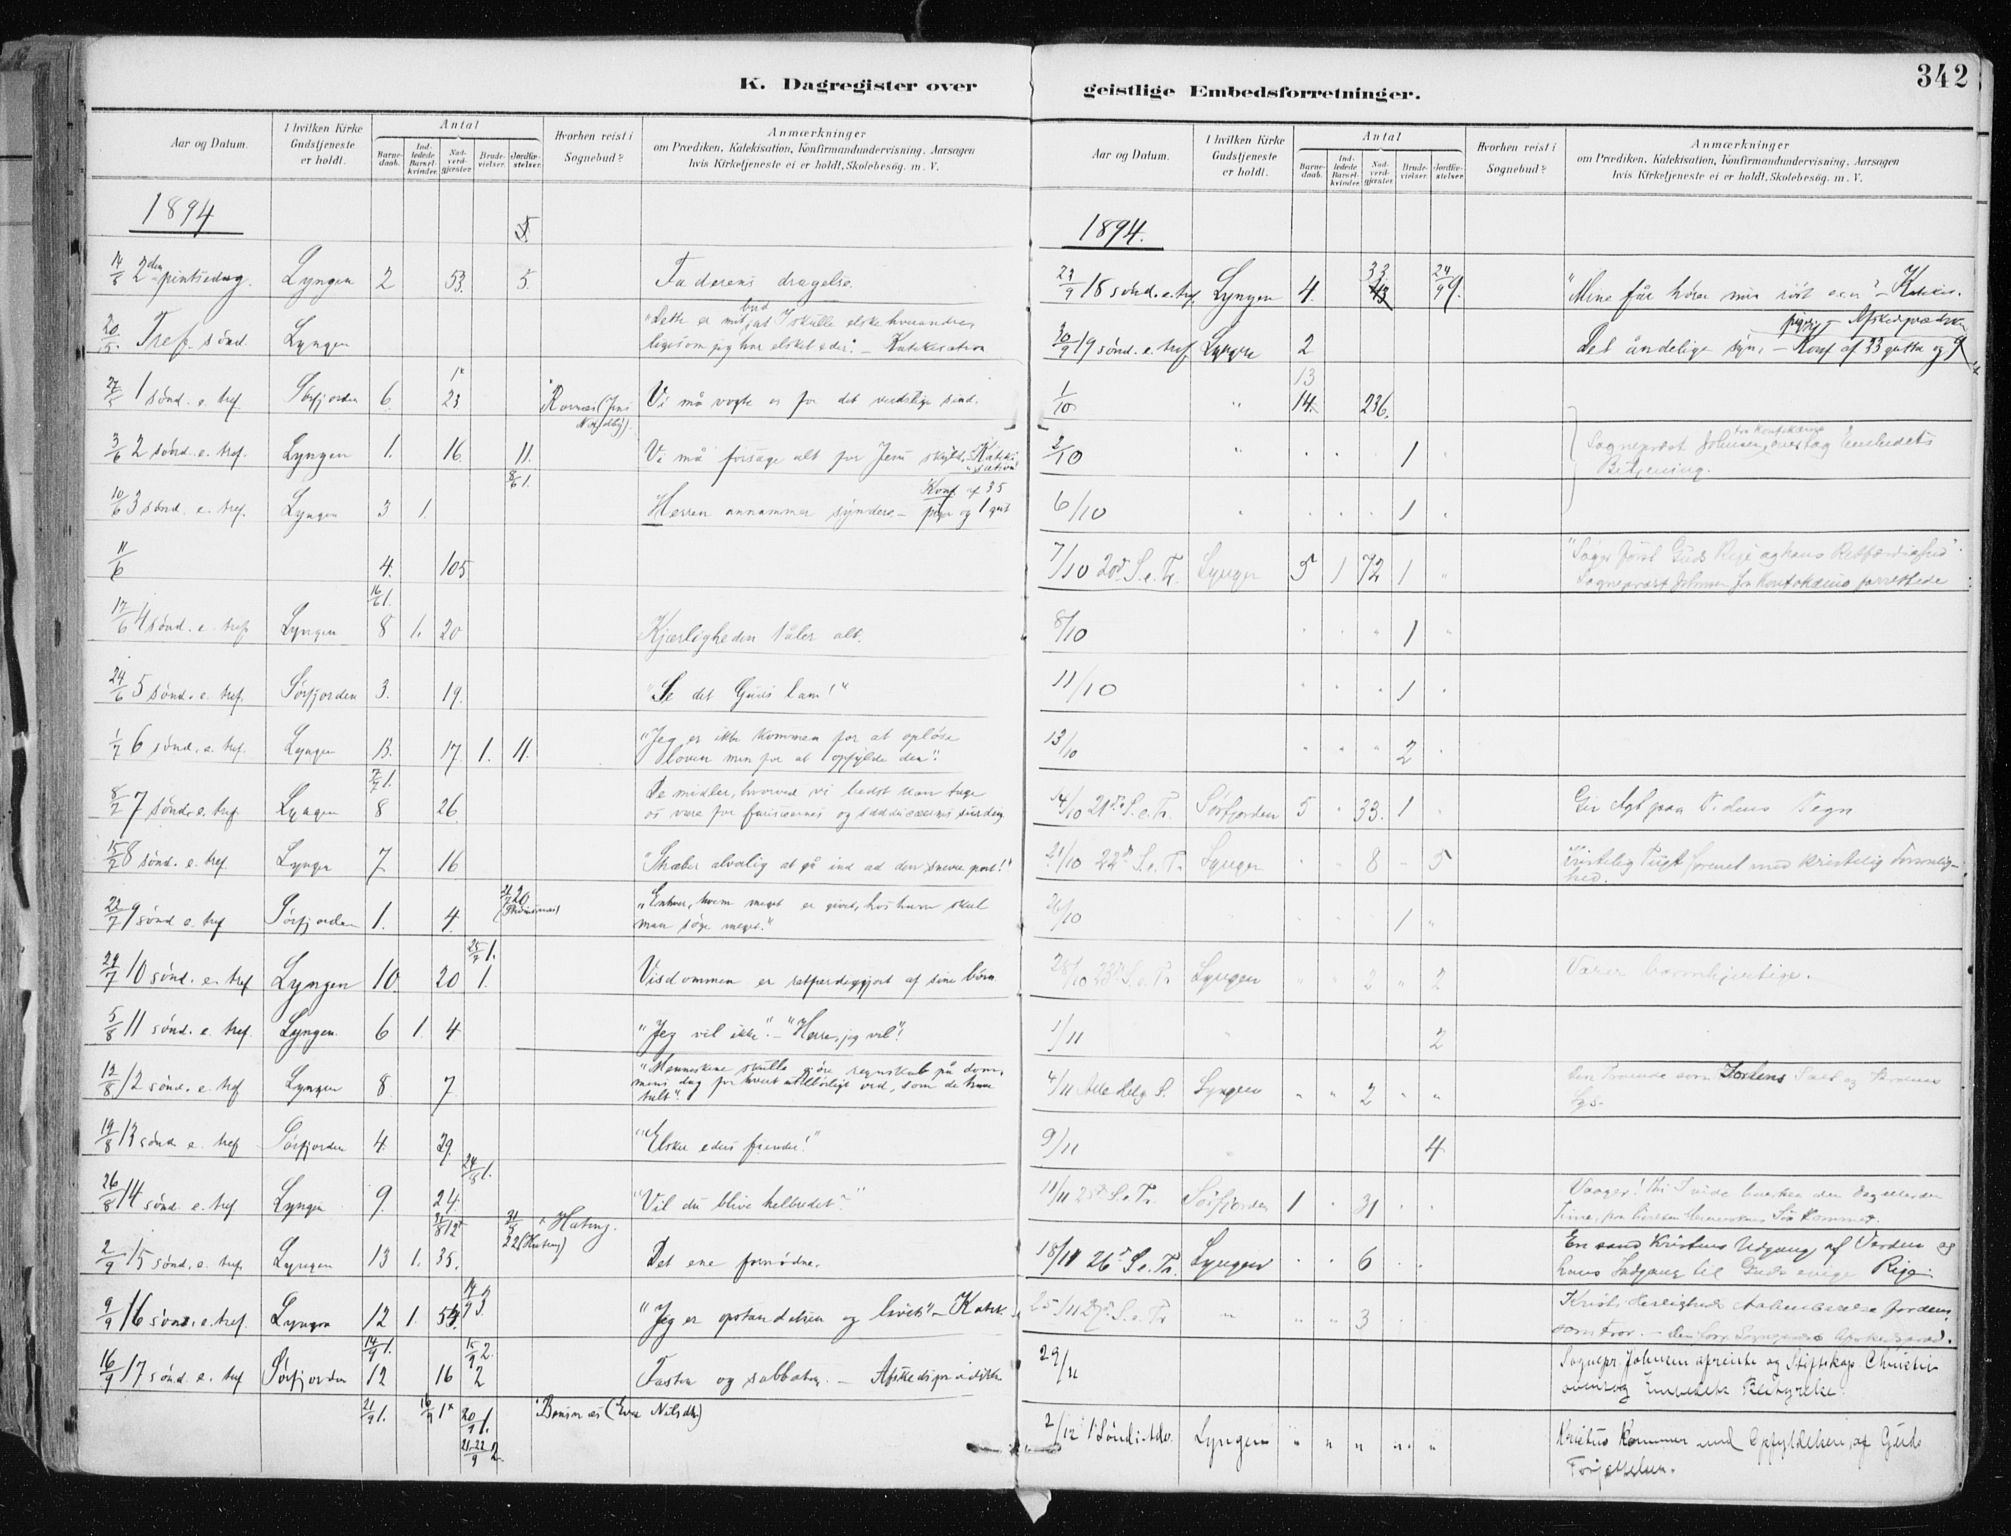 K. Dagregister over geistlige Embedsforretninger.
342
Aar og Datum.
I hvilken Kirke Gudstjeneste er holdt.
Antal
Barnedaab.
Indledede Barselkvinder.
Nadverdgjæster.
Brudevielser.
Jordfæstelser.
Hvorhen reist i Sognebud?
Anmærkninger
om Prædiken, Katekisation, Konfirmandundervisning, Aarsagen
hvis Kirketjeneste ei er holdt, Skolebesøg. m. V.
1894
5
14/5 2den pintsedag. Lyngen 2 53. 5. Faderens dragelse.
20/5 Tref. sønd. Lyngen "Dette er mit bud, at I skulle elske hverandre,
ligesom jeg har elsket eder." – Katekisation
1*
27/5 1 sønd. e. tref. Sørfjorden 6. 23 Vi må vogte os for det verdslige sind.
3/6 2 sønd. e. tref. Lyngen 1. 16. 11. Vi må forsage alt for Jesu skyld. Kateki-
sation
8/6 1.
10/6 3 sønd. e. tref. Lyngen 3 1. Herren annammer syndere – Konf. af 35
piger og 1 gut
11/6 4. 105
16/6 1.
17/6 4 sønd. e. tref. Lyngen 8 1. 20 Kjærligheden tåler alt.
24/6 5 sønd. e. tref. Sørfjorden 3. 19. "Se det Guds lam!"
1/7 6 sønd. e. tref. Lyngen 13. 17. 1. 11. "Jeg er ikke kommen for at opløse
loven men for at opfylde den".
7/7 1.
8/7 7 sønd. e. tref. Lyngen 8 26 De midler, hvorved vi bedst kan tage
os vare for farisæernes og sadducæernes surdeig
15/7 8 sønd. e. tref. Lyngen 7 16 "Stræber alvorlig at gå ind ad den snevre port!"
22/7 9 sønd e. tref Sørfjorden 1. 4. "Enhver, hvem meget er givet, hos ham skal
man søge meget."
25/7 1.
29/7 10 sønd. e. tref Lyngen 10. 20 1. Visdommen er retfærdiggjort af sine børn
5/8 11 sønd. e. tref. Lyngen. 6 1. 4. "Jeg vil ikke". – "Herre, jeg vil"!
12/8 12 sønd. e. tref Lyngen 8. 7. "Menneskene skulle gjøre regnskab på dom-
mens dag for hvert utilbørligt ord, som de have
talt".
19/8 13 sønd. e. tref Sørfjorden 4. 29. "Elsker eders fiender!"
24/8 1.
26/8 14 sønd. e. tref. Lyngen 9. 24. "Vil du blive helbredet?"
2/9 15 sønd. e. tref. Lyngen 13 1. 35. Det ene fornødne.
9/9 16 sønd. e. tref. Lyngen 12 1. 54. "Jeg er opstandelsen og livet" – Katek.
14/9 1. 15/9 2.
16/9 17 sønd. e. tref Sørfjorden 12 16 2 Fasten og sabbaten. – Afskedsprædiken
21/9 1. 16/9 1* 20/9 1.
21-22/9 2.
Aar og Datum.
I hvilken Kirke Gudstjeneste er holdt.
Antal
Barnedaab.
Indledede Barselkvinder.
Nadverdgjæster.
Brudevielser.
Jordfæstelser.
Hvorhen reist i Sognebud?
Anmærkninger
om Prædiken, Katekisation, Konfirmandundervisning, Aarsagen
hvis Kirketjeneste ei er holdt, Skolebesøg. m. V.
1894.
23/9 18 sønd. e. tref. Lyngen 4. 33. 24/9 9. "Mine får hører min røst o.s.v." – Katekis.
30/9 19 sønd. e. tref Lyngen 2 Det åndelige syn. – Konf af 33 gutter og 9
piger – Afskedsprædiken
13
1/10 " 14. 236.
2/10 " " " " 1 " Sogneprest Johnsen, fra Koutokæino overtog Embedets
Betjening.
6/10 " " " " 1 "
7/10 20de S. e. Tr. Lyngen 5 1 72 1 " "Søger først Guds Rige og hans Retfærdighed".
Sogneprest Johnsen fra Koutokæino forrettede
8/10 " " " 1 "
11/10 " " " 1 "
13/10 " " " 2 "
14/10 21de S. e. Tr. Sørfjorden 5 " 33. 1 " Giv Agt paa Tidens Tegn
21/10 22de S. e. Tr. Lyngen " " 8 " 5 Kristelig Tugt forenet med kristelig Forsonlig-
hed.
26/10 " " " 1 "
28/10 23de S. e. Tr Lyngen " " 2 " 2 Værer barmhjertige.
1/11 " 2
4/11 Alle Helg. S. Lyngen " " 2 " " Den Troende som Jordens Salt og Verdens
Lys.
9/11 4
11/11 25de S. e. Tr. Sørfjorden 1 " 31 " " Vaager! thi I vide hverken den Dag eller den
Time, paa hvilken Menneskens Søn kommer.
18/11 26de S. e. Tr. Lyngen " " 6 " " En sand Kristens Udgang af Verden og
hans Indgang til Guds evige Rige.
25/11 27de S. e. Tr " " " 3 " Kristi Herligheds Aabenbarelse for dem,
som tror. –
29/11 Sognepr. Johnsen afreiste og Stiftskap. Christie
overtog Embedets Bestyrelse.
2/12 1 Sønd. i Adv. Lyngen " " " " " Kristus kommer med Opfyldelsen af Guds
Forjættelser.